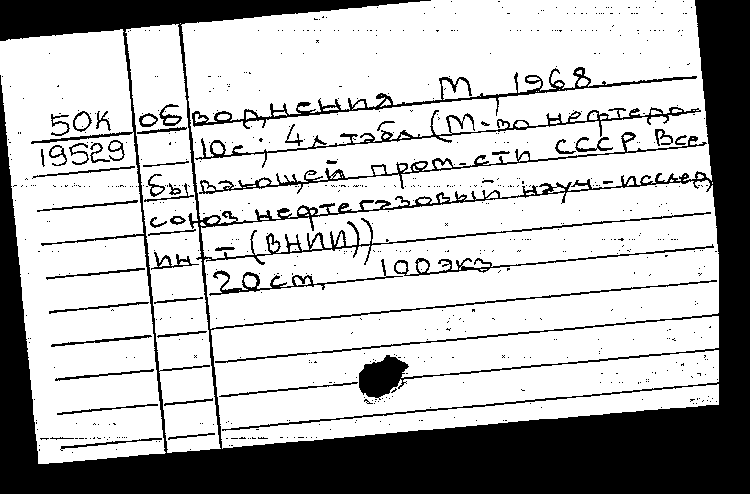 50К обводнения. М., 1968.
19529 10с; 4 л. табл. (М-во нефтедо-
бывающей пром-сти СССР. Все
союз. нефтегазовый науч.-исслед
ин-т (ВНИИ)).
20 ст. 100 экз.